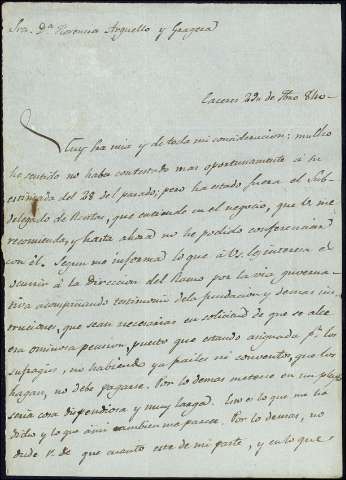 Sra. Dª Florencia Arguello y Gragera
Caceres 29 de 840-
Muy Sra mia y de toda mi consideracion: mucho
he sentido no haba contestado mas oportunamente á su
estimada del 28 del pasado; pero ha estado fuera el Sub-
delegado de Rentas, que entiende en el negocio, que V. me
recomienda, y hasta ahora no he podido conferenciar
con él. Segun me informa lo que á V. le interesa es
ocurrir á la Direccion del Ramo por la via guverna-
tiva acompañando testimonio dela fundacion y demas ins-
trucciones, que sean necesarias en solicitud de que se alce
esa ominosa pension, puesto que estando asignada pª los
sufragios, no habiendo ya frailes ni conventos, que los
hagan, no debe pagarse. Por lo demas meterse en un pleyto
seria cosa dispendiosa y muy larga. Esto es lo que me ha
dicho y lo que á mi tambien me parece. Por lo demas, no
dude V. de que cuanto este de mi parte, y en lo que